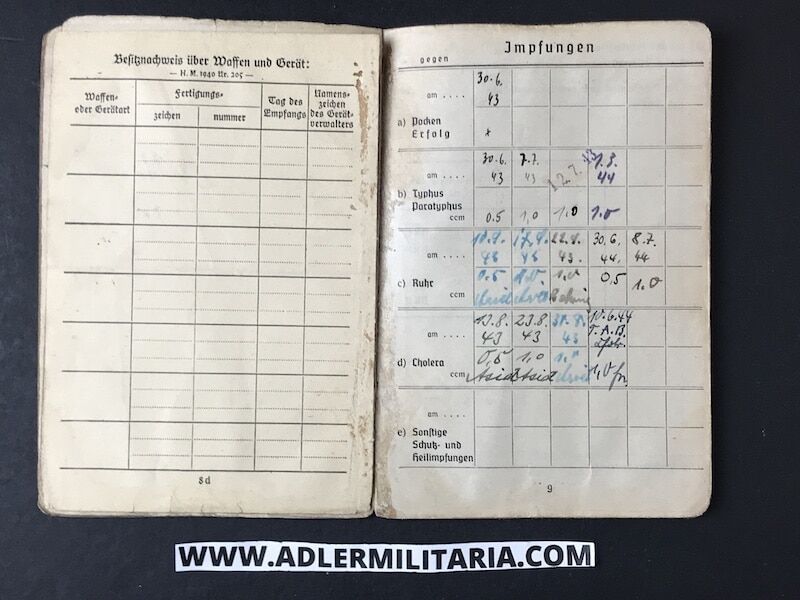 Besitznachweis über Waffen und Gerät:
— H. M. 1940 Nr. 205 —
Waffen- oder Geräteart
Fertigungs-
zeichen
nummer
Tag des Empfangs
Namens- zeichen des Gerät- verwalters
8d
Impfungen
gegen
30.6.
am .... 43
a) Pocken
Erfolg +
30.6. 7.7. 12.7.43 1.3.
am .... 43 43 44
b) Typhus
Paratyphus
ccm 0.5 1,0 1.0 1.0
30.6. 8.7.
am .... 43. 44. 44
c) Ruhr 0.5 1.0 0,5 1.0
ccm
13.8. 23.8. 31.8. 10.6.44
am .... 43 43 43 T.A.B.
d) Cholera 0,5 1,0 1,0
ccm Asid Asid 1,0
am ....
e) Sonstige
Schutz- und
Heilimpfungen
9
WWW.ADLERMILITARIA.COM